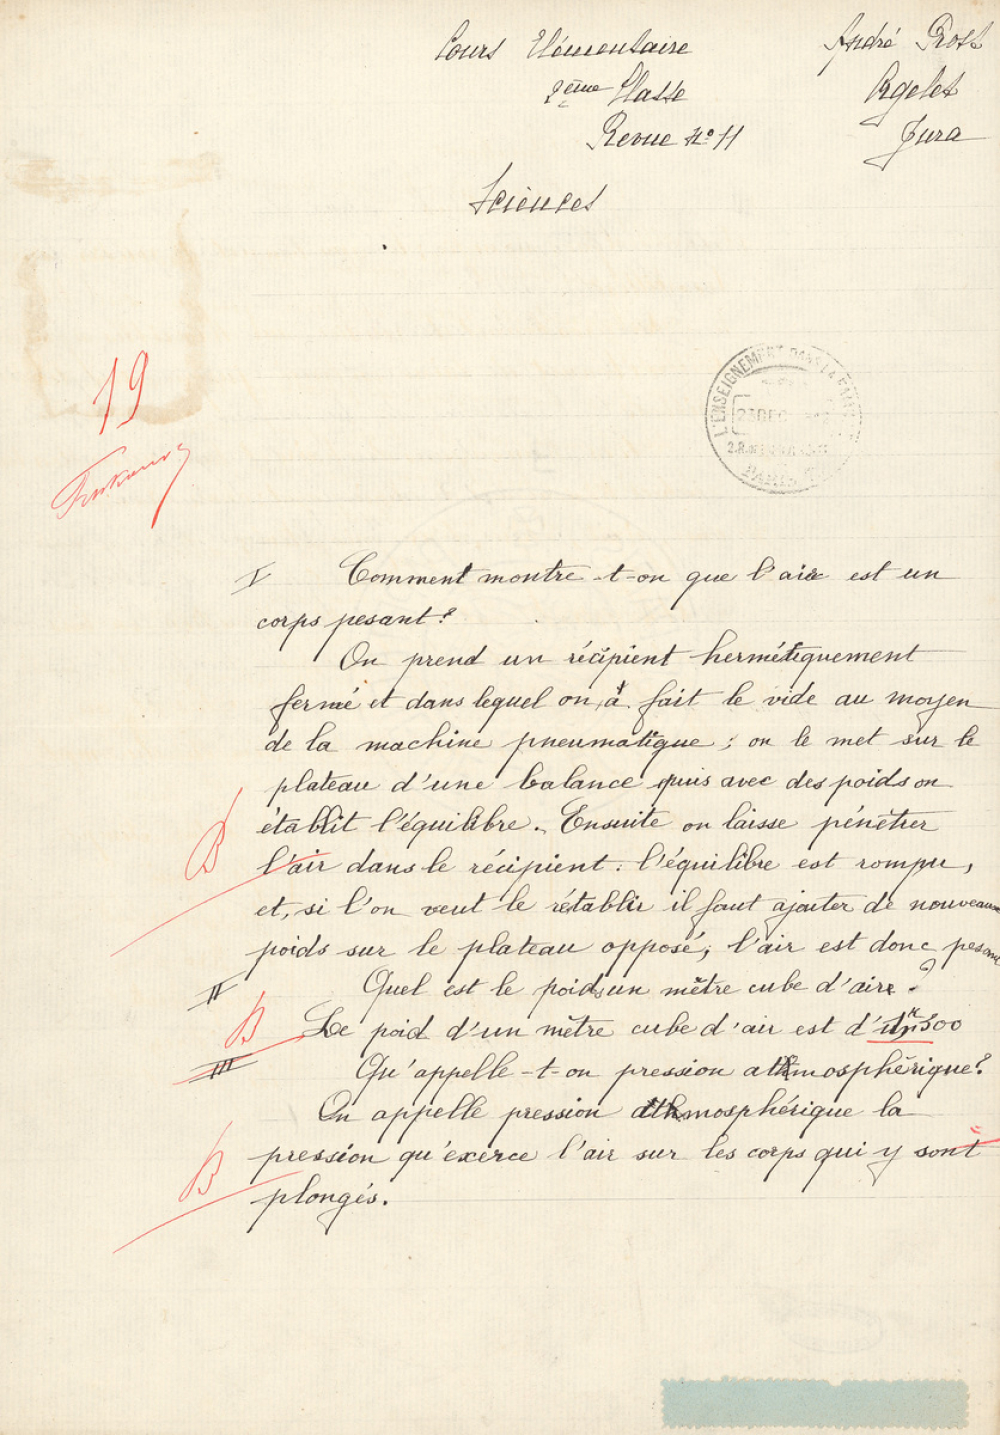 Cours Elémentaire
André Prost
2ème Classe
Orgelet
Revue N° 11
Jura
Sciences
19
L'ENSEIGNEMENT DANS LA
23 DEC
PARIS
I Comment montre-t-on que l'air est un
corps pesant?
On prend un récipient hermétiquement
fermé et dans lequel on a fait le vide au moyen
de la machine pneumatique; on le met sur le
plateau d'une balance puis avec des poids on
établit l'équilibre. Ensuite on laisse pénétrer
B l'air dans le récipient: l'équilibre est rompu,
et, si l'on veut le rétablir il faut ajouter de nouveaux
poids sur le plateau opposé; l'air est donc pesant
II Quel est le poids un mètre cube d'air?
B Le poid d'un mètre cube d'air est d' 300
III Qu'appelle-t-on pression athmosphérique?
On appelle pression athmosphérique la
pression qu'exerce l'air sur les corps qui y sont
B plongés.